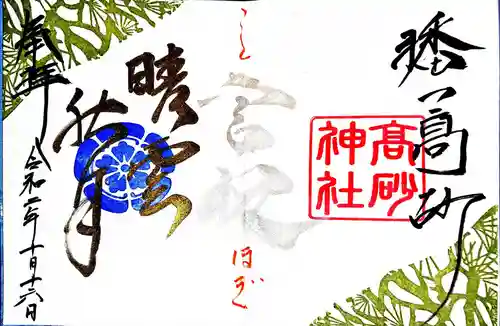 播
高砂
高砂
神社
こと
言祝
ほぎ
晴雲
秋月
奉拝
令和二年十月十六日